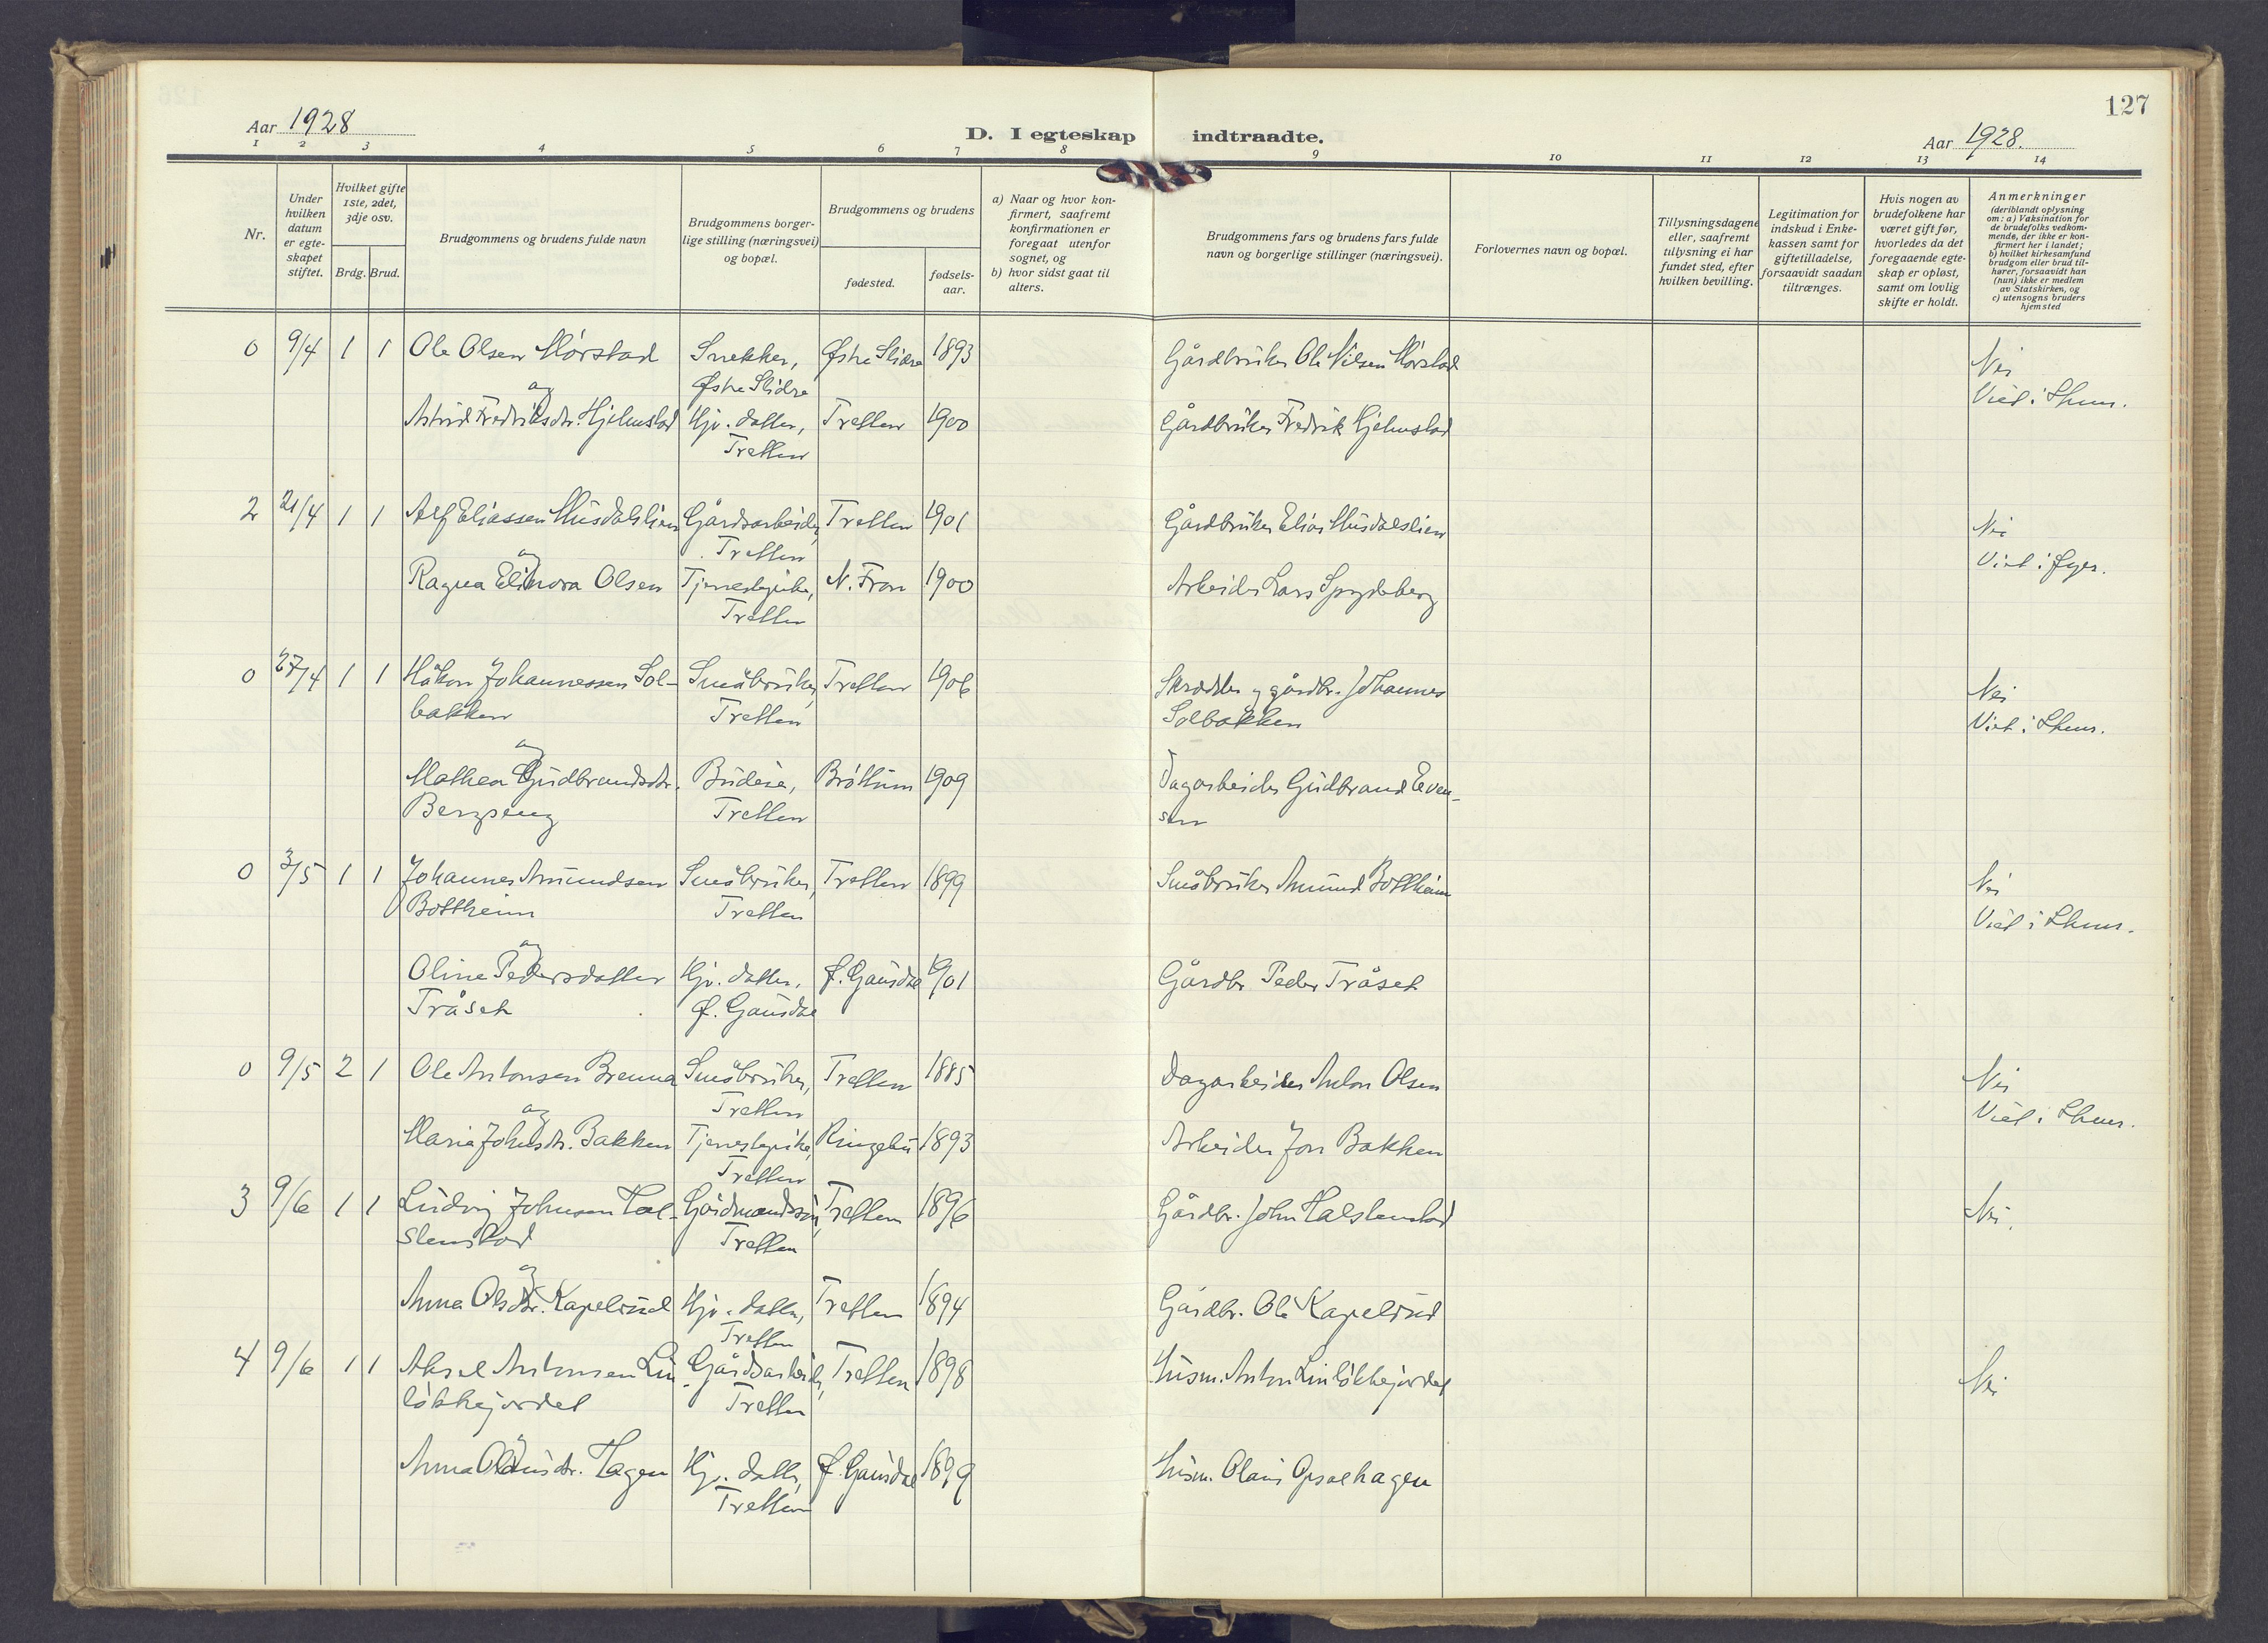 127
Aar 1928
D. I egteskap indtraadte.
Aar 1928.
1 2 3 4 5 6 7 8 9 10 11 12 13 14
Nr.
Under hvilken datum er egte-skapet stiftet.
Hvilket gifte 1ste, 2det, 3dje osv.
Brdg. Brud.
Brudgommens og brudens fulde navn
Brudgommens borger-lige stilling (næringsvei) og bopæl.
Brudgommens og brudens
fødested.
fødsels-aar.
a) Naar og hvor kon-firmert, saafremt konfirmationen er foregaat utenfor sognet, og
b) hvor sidst gaat til alters.
Brudgommens fars og brudens fars fulde navn og borgerlige stillinger (næringsvei).
Forlovernes navn og bopæl.
Tillysningsdagene eller, saafremt tillysning ei har fundet sted, efter hvilken bevilling.
Legitimation for indskud i Enke-kassen samt for giftetilladelse, forsaavidt saadan tiltrænges.
Hvis nogen av brudefolkene har været gift før, hvorledes da det foregaaende egte-skap er opløst, samt om lovlig skifte er holdt.
Anmerkninger (deriblandt oplysning om: a) Vaksination for de brudefolks vedkom-mende, der ikke er kon-firmert her i landet; b) hvilket kirkesamfund brudgom eller brud til-hører, forsaavidt han (hun) ikke er medlem av Statskirken, og c) utensogns bruders hjemsted
0 9/4 1 1 Ole Olsen Mørstad Snekker, Østre Slidre 1893 Gårdbruker Ole Nilsen Mørstad Nei
og Østre Slidre Viet i Lhmr.
Astrid Fredriksdtr. Hjelmstad Hjv. datter, Tretten 1900 Gårdbruker Fredrik Hjelmstad
Tretten
2 21/4 1 1 Alf Eliassen Musdalslien Gårdsarbeider, Tretten 1901 Gårdbruker Elias Musdalslien Nei
og Tretten Viet i Øyer.
Ragna Elinora Olsen Tjenestepike, N. Fron 1900 Arbeider Lars Spydeberg
Tretten
0 27/4 1 1 Håkon Johannessen Sol- Småbruker, Tretten 1906 Skredder og gårdbr. Johannes Nei
bakken Tretten Solbakken Viet i Lhmr.
og
Mathea Gudbrandsdtr. Budeie, Brøttum 1909 Dagarbeider Gudbrand Even-
Bergseng Tretten sen
0 3/5 1 1 Johannes Amundsen Småbruker, Tretten 1899 Småbruker Amund Bottheim Nei
Bottheim Tretten Viet i Lhmr.
og
Oline Pedersdatter Hjv. datter, Ø. Gausdal 1901 Gårdbr. Peder Tråset
Tråset Ø. Gausdal
0 9/5 2 1 Ole Antonsen Brenna Småbruker, Tretten 1885 Dagarbeider Anton Olsen Nei
og Tretten Viet i Lhmr.
Maria Johnsdtr. Bakken Tjenestepike, Ringebu 1893 Arbeider Jon Bakken
Tretten
3 9/6 1 1 Ludvig Johnsen Hal- Gårdmandssøn, Tretten 1896 Gårdbr. John Halstenstad Nei.
stenstad Tretten
og
Anna Olsdtr. Kapelrud Hjv. datter, Tretten 1894 Gårdbr. Ole Kapelrud
Tretten
4 9/6 1 1 Aksel Antonsen Lin- Gårdsarbeider, Tretten 1898 Husm. Anton Linløkkejordet Nei
løkkejordet Tretten
og
Anna Olausdtr. Hagen Hjv. datter, Ø. Gausdal 1899 Husm. Olaus Opsalhagen
Tretten